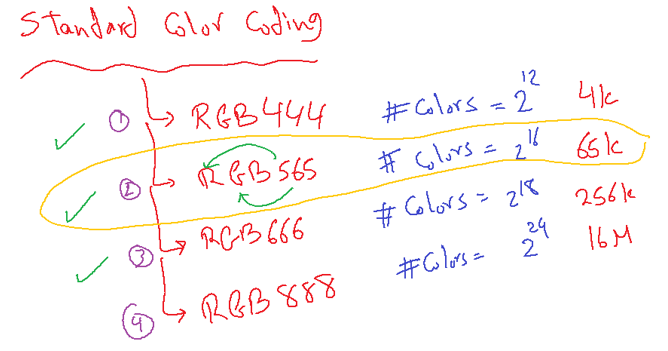 Standard Color Coding
① RGB444 #Colors = 2^12 4k
② RGB565 # Colors = 2^16 65k
③ RGB666 # Colors = 2^18 256k
④ RGB888 #Colors = 2^24 16M